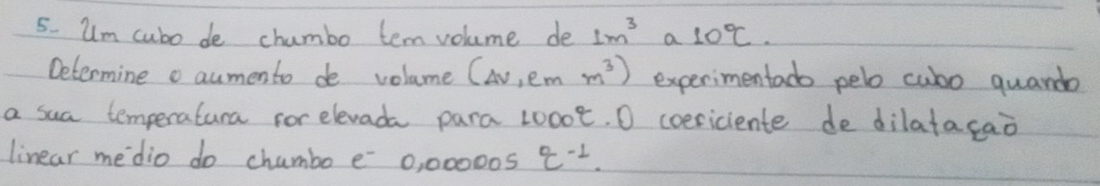 5- Um cubo de chumbo tem volume de 1m³ a 10°C.
Determine o aumento de volume (ΔV, em m³) experimentado pelo cubo quando
a sua temperatura for elevada para 1000°C. O coeficiente de dilatação
linear médio do chumbo é 0,000005 °C⁻¹.